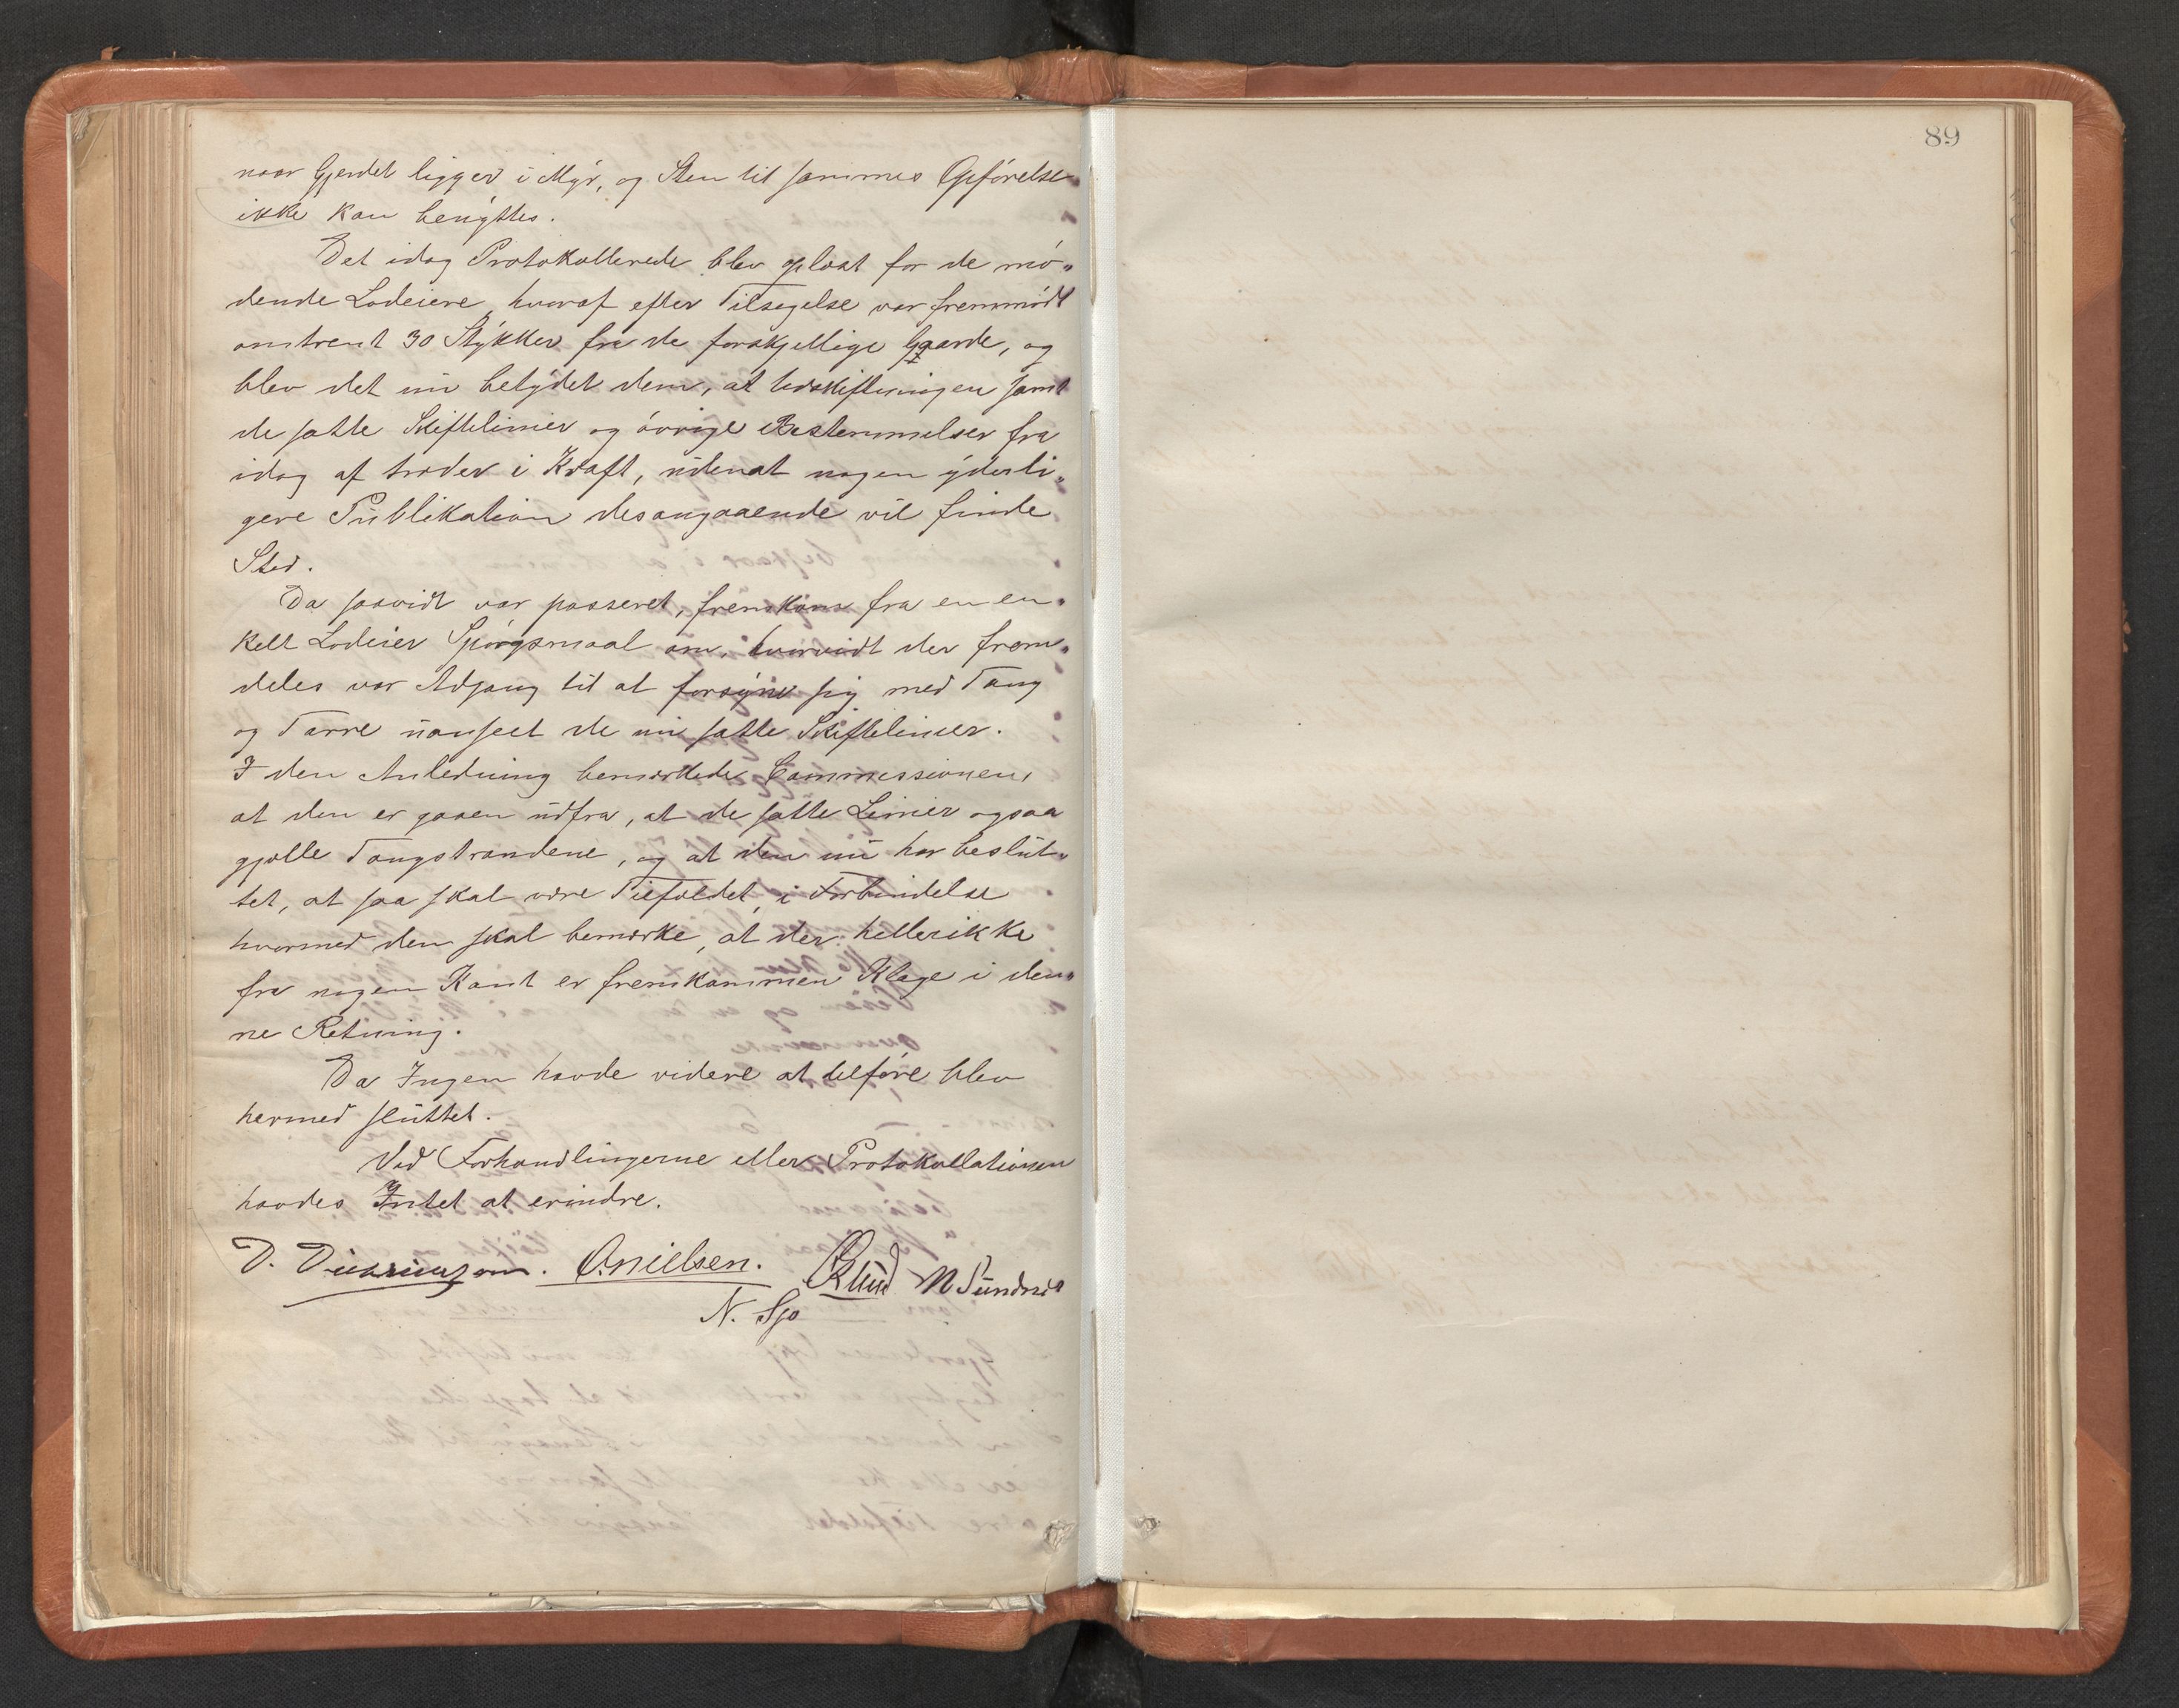 naar Gjerdet ligger i Myr, og Sten til sammes Opførelse
ikke kan benyttes.
Det idag Protokollerede blev oplæst for de mø„
dende Lodeiere, hvoraf efter Tilsigelse var fremmødt
omtrent 30 Stykker fra de forskjellige Gaarde, og
blev det nu betydet dem, at Udskiftningen samt
de satte Skiftelinier og øvrige Bestemmelser fra
idag af træder i Kraft, udenat nogen yderli„
gere Publikation desangaaende vil finde
Sted.
Da saavidt var passeret, fremkom fra en en„
kelt Lodeier Spørgsmaal om, hvorvidt der frem„
deles var Adgang til at forsyne sig med Tang
og Tarre uanseet de nu satte Skiftelinier.
I den Anledning bemærkede Commissionen,
at den er gaaen udfra, at de satte Linier ogsaa
gjælle Tangstrandene, og at den nu har beslut„
tet, at saa skal være Tilfældet, i Forbindelse
hvormed den skal bemærke, at der hellerikke
fra nogen Kant er fremkommen Klage i den„
ne Retning.
Da Ingen havde videre at tilføre blev
hermed sluttet.
Ved Forhandlingerne eller Protokollationen
havdes Intet at erindre.
D. O. Nielsen. M Sundnes
N. Sjo
89